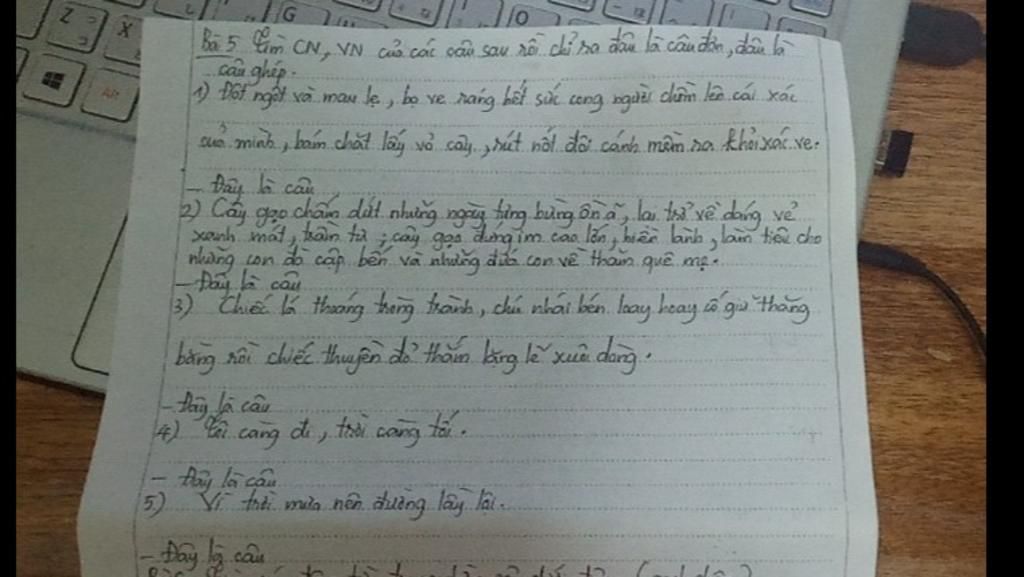 Z
X
G
O
Alt
Bài 5 Tìm CN, VN của các câu sau rồi chỉ ra đâu là câu đơn, đâu là
câu ghép.
1) Đột ngột và mau lẹ, bọ ve ráng hết sức cong người chồm lên cái xác
của mình, bám chặt lấy vỏ cây, rút nốt đôi cánh mềm ra khỏi xác ve.
- Đây là câu
2) Cây gạo chấm dứt những ngày tưng bừng ồn ã, lại trở về dáng vẻ
xanh mát, trầm tư; cây gạo đứng im cao lớn, hiền lành, làm tiêu cho
những con đò cập bến và những đứa con về thăm quê mẹ.
- Đây là câu
3) Chiếc lá thoáng tròng trành, chú nhái bén loay hoay cố giữ thăng
bằng rồi chiếc thuyền đỏ thắm lặng lẽ xuôi dòng.
- Đây là câu
4) Tôi càng đi, trời càng tối.
- Đây là câu
5) Vì trời mưa nên đường lầy lội.
- Đây là câu